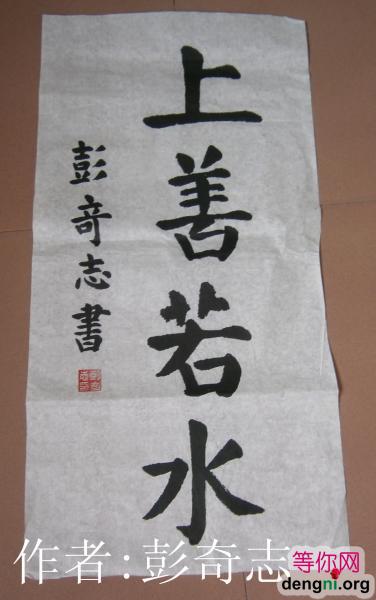 上善若水
彭奇志書
作者:彭奇志
等你网
dengni.org